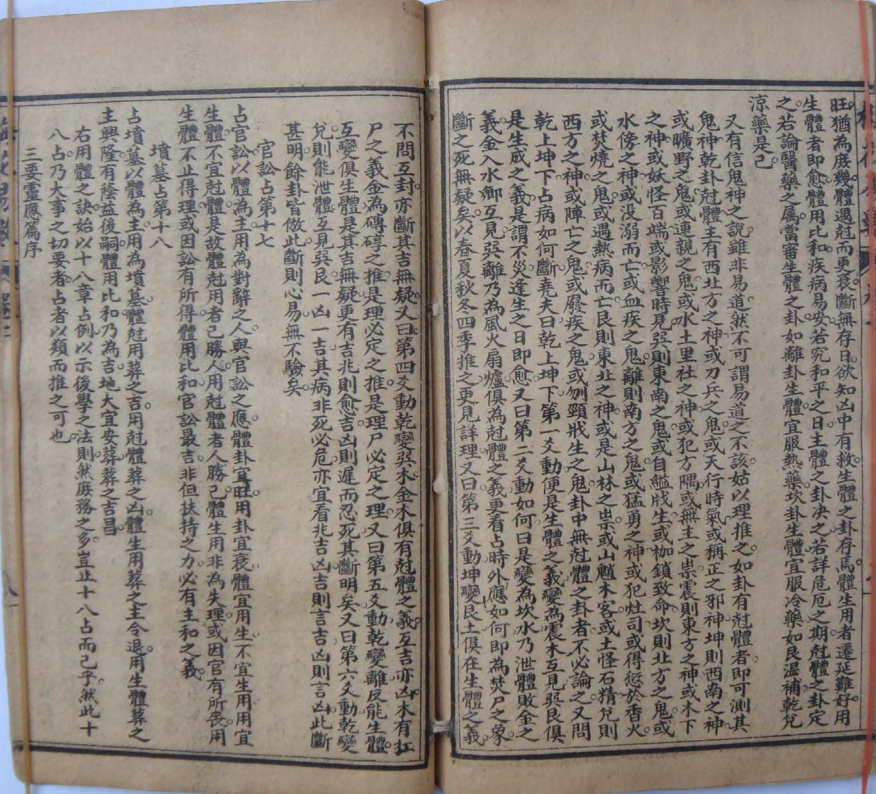 旺猶為庶幾體遇尅而更衰斷無存日欲知凶中有救生體之卦存焉體生用者遷延難好用
生體者即愈體用比和疾病易安若究和平之日主體之卦決之若詳危厄之期尅體之卦定
之若論醫藥之屬當審生體之卦如離卦生體宜服熱藥坎卦生體宜服冷藥如艮溫補乾兌
涼藥是已
又有信鬼神之說雖非易道然不可謂易道之不該姑以理推之如卦有尅體者即可測其
鬼神乾卦尅體主有西北方之神或刀兵之鬼或天行時氣或稱正之邪神坤則西南之神
或曠野之鬼或連親之鬼或水土里社之神或犯方隅或無主之祟震則東方之神或木下
之神或妖怪百端或影響時見巽則東南之鬼或自縊戕生或枷鎖致命坎則北方之鬼或
水傍之神或没溺而亡或血疾之鬼離則南方之鬼或猛勇之神或犯灶司或得愆於香火
或焚燒之鬼或遇熱病而亡艮則東北之神或是山林之祟或山魈木客或土怪石精兌則
西方之神或陣亡之鬼或廢疾之鬼或刎頸戕生之鬼卦中無尅體之卦者不必論之又問
乾上坤下占病如何斷堯夫曰乾上坤下第一爻動便是生體之義變為震木互見巽艮俱
是生成之義是謂不災逢生之日即愈又曰第二爻動如何曰是變為坎水乃泄體敗金之
義金入水鄉互見巽離乃為風火扇爐俱為尅體之義更看占時外應如何即為焚尸之象
斷之死無疑矣以春夏秋冬四季推之更見詳理又曰第三爻動坤變艮土俱在生體之義
不問互卦亦斷其吉無疑又曰第四爻動乾變巽木金木俱有尅體之義互吉亦凶木有扛
尸之義金為磚𥔵之推是理必定之推是理尸必定之理又曰第五爻動乾變離反能生體
互變俱生體是其吉無疑更有吉兆則愈吉凶則遲而忍死其斷明矣又曰第六爻動乾變
兌則能泄體互見巽艮一凶一吉其病非死必危亦宜看兆吉凶吉則言吉凶則言凶此斷
甚明餘卦皆倣此斷則心易無不驗矣
官訟占第十七
占官訟以體為主用為對辭之人與官訟之應體卦宜旺用卦宜衰體宜用生不宜生用用宜
生體不宜尅體是故體尅用者己勝人用尅體者人勝己體生用非為失理或因官有所喪用
生體不止得理或因訟有所得體用比和官訟最吉非但扶持之力必有主和之義
墳墓占第十八
占墳墓以體為主用為墳墓體尅用葬之吉用尅體葬之凶體生用葬之主令退用生體葬之
主興隆有蔭益後嗣體用比和乃為吉地大宜安葬葬之吉昌
右用體之訣始以十八章占例以示後學之法則然庶務之多豈止十八占而己乎然此十
八占乃大事之切要者占者以類而推之可也
三要靈應篇序